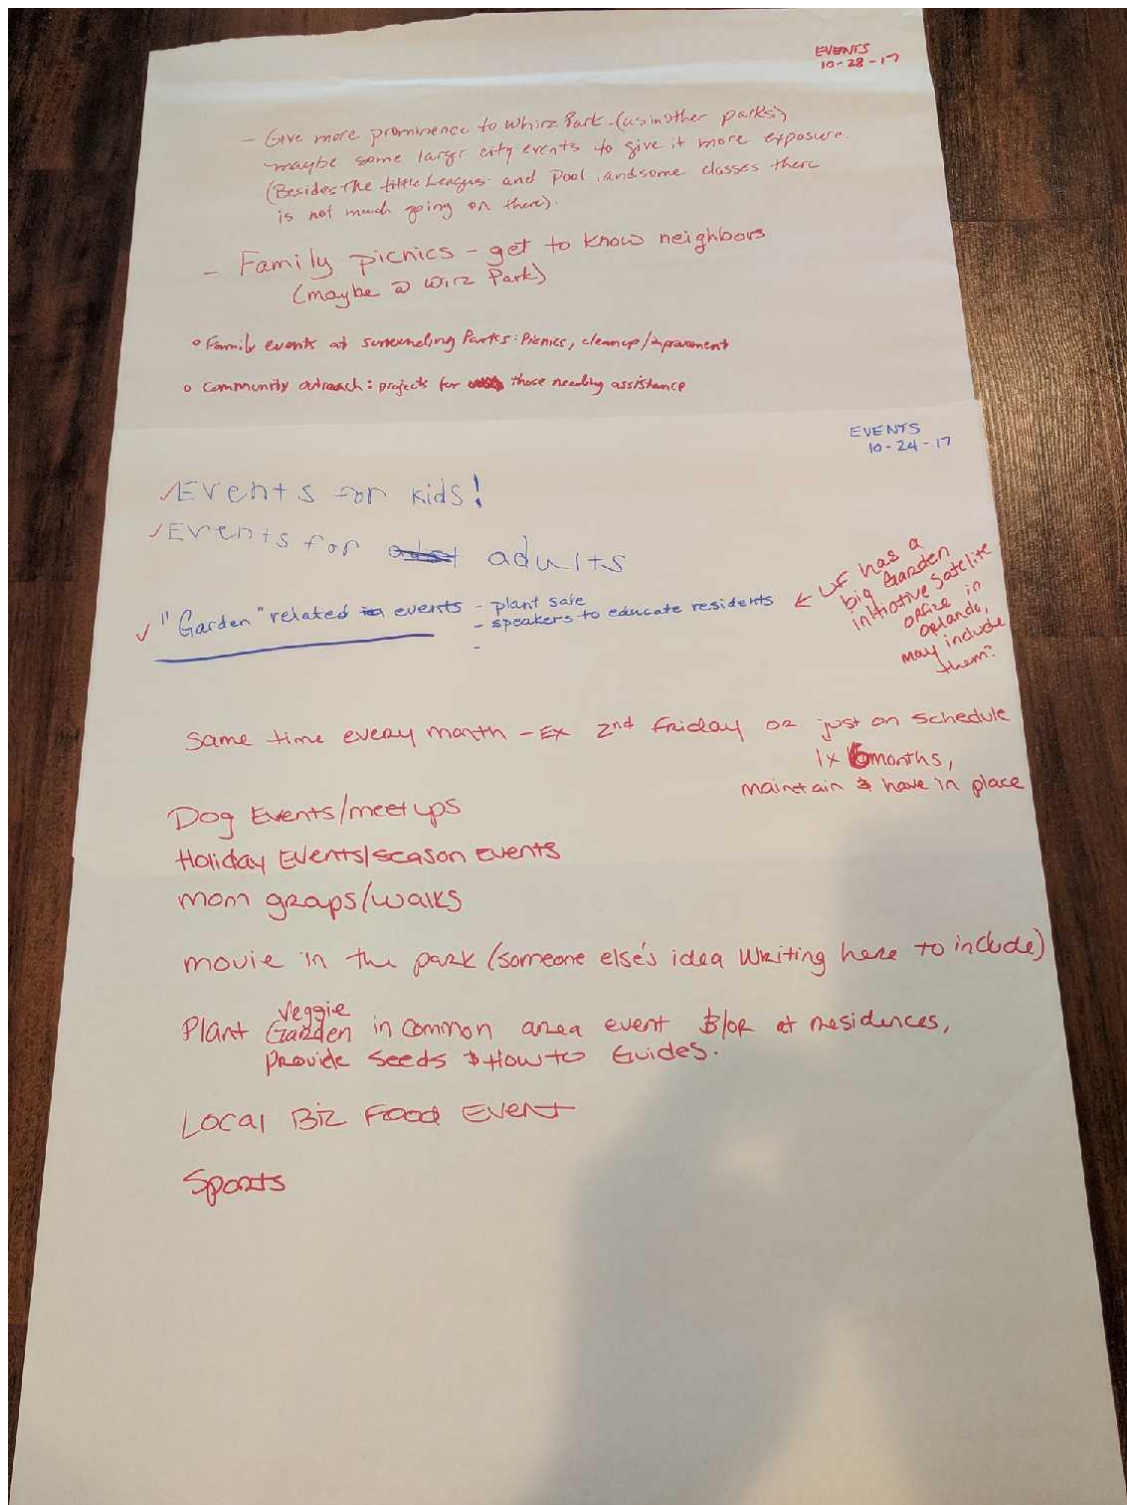 EVENTS
10-28-17
- Give more prominence to Whirz Park (as in other parks)
maybe some larger city events to give it more exposure.
(Besides the little League and Pool and some classes there
is not much going on there).
- Family picnics - get to know neighbors
(maybe @ Wirz Park)
o Family events at surrounding Parks: Picnics, cleanup/improvement
o Community outreach: projects for those needing assistance
EVENTS
10-24-17
✓Events for kids!
✓Events for adults
✓ "Garden" related events - plant sale
- speakers to educate residents
-
← UF has a
big Garden
initiative Satelite
office in
Orlando,
may include
them?
Same time every month - Ex 2nd Friday or just on schedule
1x 6months,
maintain & have in place
Dog Events/meetups
Holiday Events/season events
mom groups/walks
movie in the park (someone else's idea writing here to include)
Veggie
Plant Garden in common area event &/or at residences,
provide seeds & How to Guides.
Local Biz Food Event
Sports